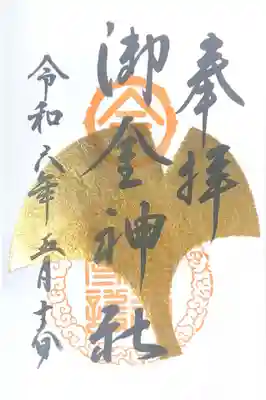 奉拝
金
御金神社
令和六年五月